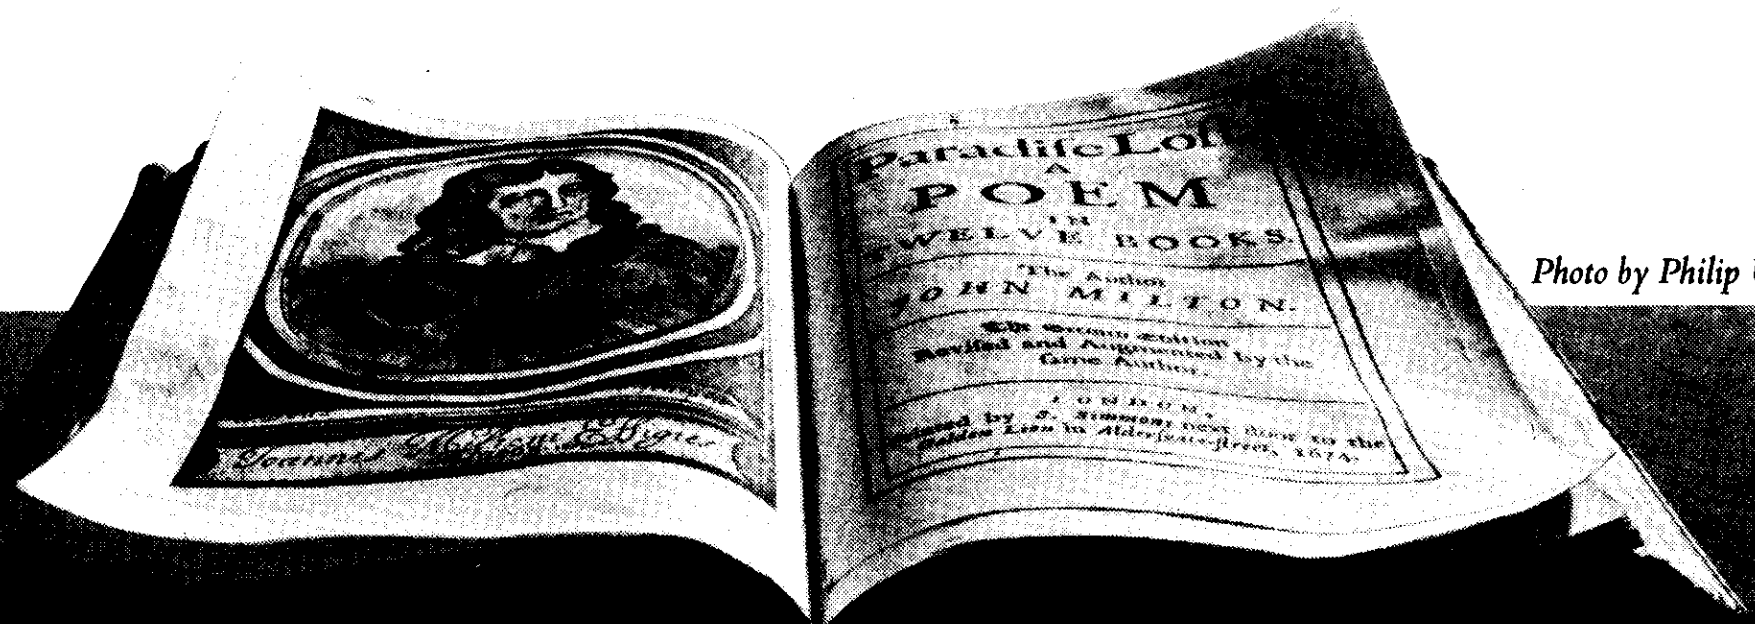 Joannis Miltoni Effigies
Paradise Lost
A
POEM
IN
TWELVE BOOKS.
The Author
JOHN MILTON.
The Second Edition
Revised and Augmented by the
same Author.
LONDON,
Printed by S. Simmons next door to the
Golden Lion in Aldersgate-street, 1674.
Photo by Philip